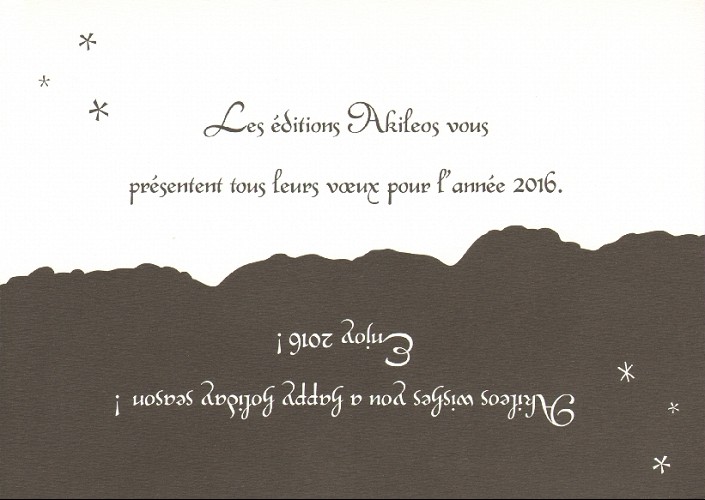 Les éditions Akileos vous
présentent tous leurs vœux pour l'année 2016.
Akileos wishes you a happy holiday season !
Enjoy 2016 !